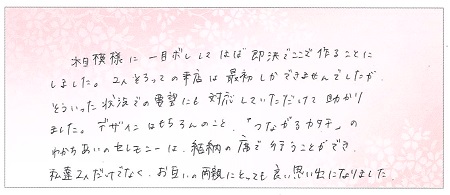 相模様に一目ボレしてほぼ即決でここで作ることに
しました。2人そろっての来店は最初しかできませんでしたが、
そういった状況での要望にも対応していただけて助かり
ました。デザインはもちろんのこと、「つながるカタチ」の
わかちあいのセレモニーは、結納の席で行うことができ、
私達2人だけでなく、お互いの両親にとっても良い思い出になりました。